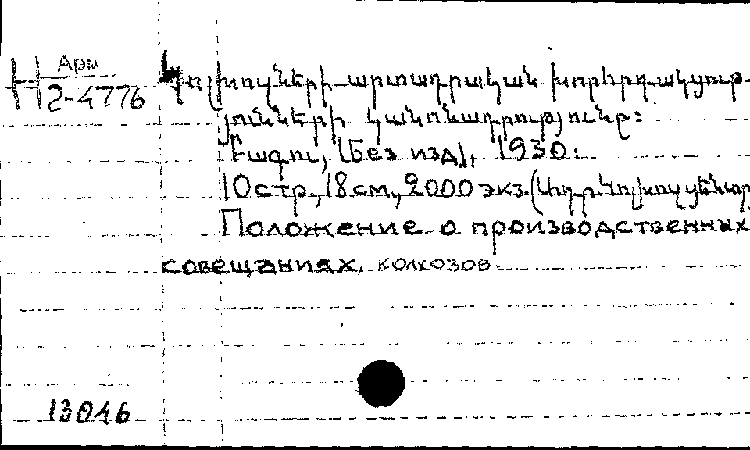 Арм
2-4776
Կոլխոզների արտադրական խորհրդակցութ-
յունների կանոնադրությունը։
Բագու, [Без изд], 1930.
10 стр., 18 см., 2000 экз. (Ադր.
Положение о производственных
совещаниях колхозов
13046